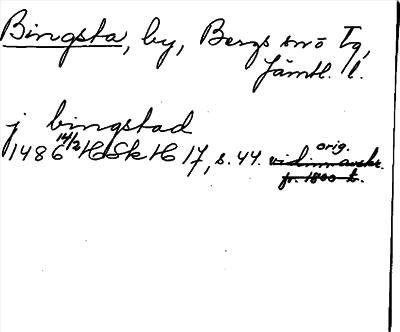 Bingsta, by, Bergs sn ö Tg,
Jämtl. l.
j bingstad
1486 14/2 HSkH 17, s. 44. orig.
vidim. avskr.
fr. 1800 t.